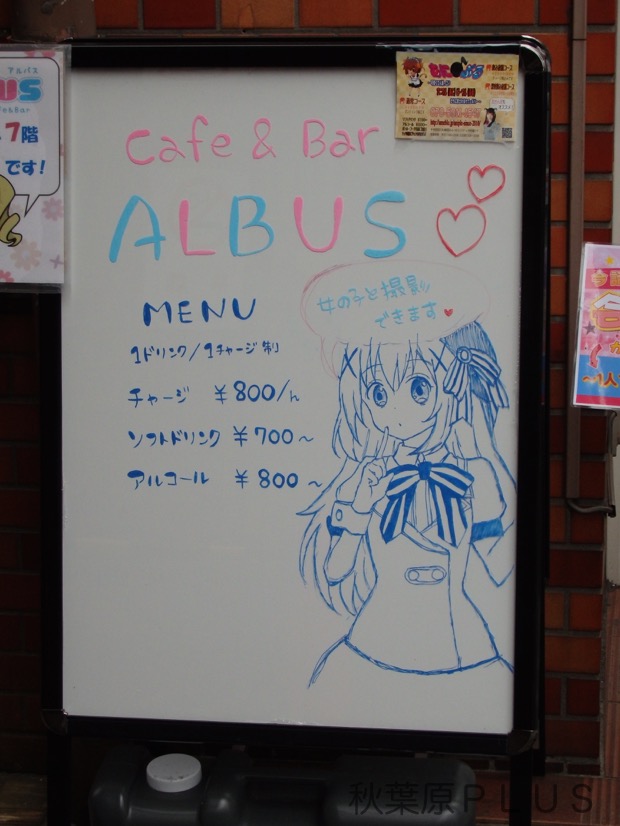 Cafe & Bar
ALBUS
MENU
1ドリンク/1チャージ制
チャージ ¥800/h
ソフトドリンク ¥700~
アルコール ¥800~
女の子と撮影
できます♥
アルバス
US
7階
です!
秋葉原PLUS